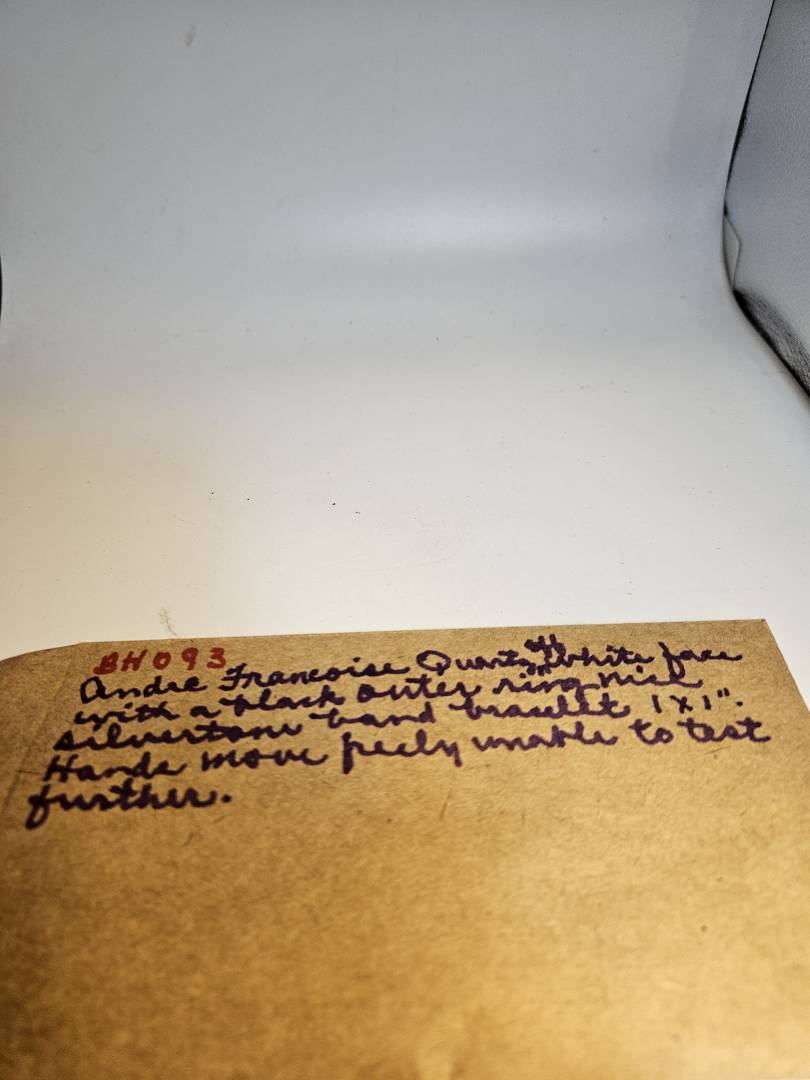 BH093
Andre Francoise Quartz off white face
with a black outer ring nice
silvertone band bracelet 1x1".
Hands move freely unable to test
further.